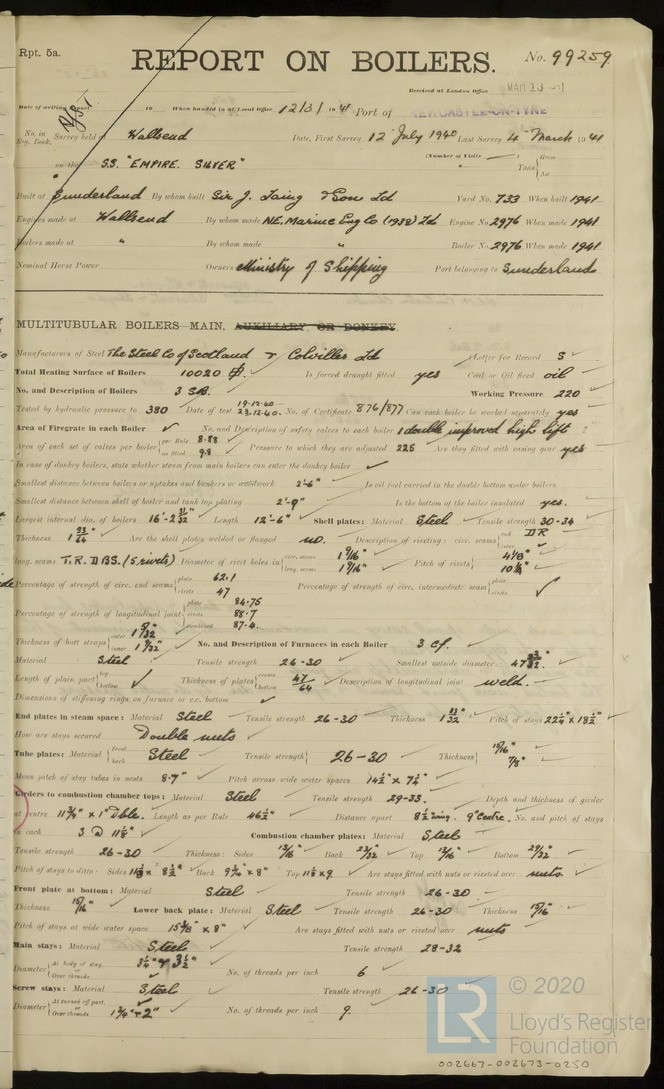 Rpt. 5a.
REPORT ON BOILERS.
No. 99259
Received at London Office
Date of writing Report 19 When handed in at Local Office 12/3/1941 Port of NEWCASTLE-ON-TYNE
No. in Reg. Book. Survey held at Wallsend Date, First Survey 12 July 1940 Last Survey 4 March 1941
(Number of Visits )
on the S.S. "EMPIRE. SILVER" Tons { Gross Net
Built at Sunderland By whom built Sir J. Laing & Son Ld Yard No. 733 When built 1941
Engines made at Wallsend By whom made N.E. Marine Eng Co (1938) Ld Engine No. 2976 When made 1941
Boilers made at " By whom made " Boiler No. 2976 When made 1941
Nominal Horse Power Owners Ministry of Shipping Port belonging to Sunderland
MULTITUBULAR BOILERS—MAIN, AUXILIARY, OR DONKEY.
Manufacturers of Steel The Steel Co of Scotland & Colvilles Ld (Letter for Record S
Total Heating Surface of Boilers 10020 Is forced draught fitted yes Coal or Oil fired oil
No. and Description of Boilers 3 S.B. Working Pressure 220
Tested by hydraulic pressure to 380 Date of test 19.12.40 23.12.40. No. of Certificate 876/877 Can each boiler be worked separately yes
Area of Firegrate in each Boiler No. and Description of safety valves to each boiler 1 double improved high lift
Area of each set of valves per boiler { per Rule 8.88 as fitted 9.8 Pressure to which they are adjusted 225 Are they fitted with easing gear yes
In case of donkey boilers, state whether steam from main boilers can enter the donkey boiler
Smallest distance between boilers or uptakes and bunkers or woodwork 2'-6" Is oil fuel carried in the double bottom under boilers
Smallest distance between shell of boiler and tank top plating 2'-9" Is the bottom of the boiler insulated yes.
Largest internal dia. of boilers 16'-2 31/32" Length 12'-6" Shell plates: Material Steel Tensile strength 30-34
Thickness 1 33/64 Are the shell plates welded or flanged no. Description of riveting: circ. seams { end DR inter.
long. seams T.R. D.B.S. (5 rivets) Diameter of rivet holes in { circ. seams 1 9/16" long. seams 1 9/16" Pitch of rivets {
Percentage of strength of circ. end seams { plate 62.1 rivets 47 Percentage of strength of circ. intermediate seam { plate rivets
Percentage of strength of longitudinal joint { plate 84.75 rivets 88.7 combined 87.4
Thickness of butt straps { outer inner No. and Description of Furnaces in each Boiler 3 Cf.
Material Steel Tensile strength 26-30 Smallest outside diameter
Length of plain part { top bottom Thickness of plates { crown bottom 47/64 Description of longitudinal joint weld.
Dimensions of stiffening rings on furnace or c.c. bottom
End plates in steam space: Material Steel Tensile strength 26-30 Thickness Pitch of stays 22 1/4 x 18 1/2"
How are stays secured Double nuts
Tube plates: Material { front back Steel Tensile strength { 26-30 Thickness { 15/16" 7/8"
Mean pitch of stay tubes in nests 8.7" Pitch across wide water spaces 14 1/2" x 7 1/4"
Girders to combustion chamber tops: Material Steel Tensile strength 29-33. Depth and thickness of girder
at centre 11 3/4" x 1" Dble. Length as per Rule 46 1/2" Distance apart 8 1/2 wing. 9" Centre. No. and pitch of stays
in each 3 @ 11 1/8" Combustion chamber plates: Material Steel
Tensile strength 26-30 Thickness: Sides 13/16" Back 23/32" Top 13/16" Bottom 29/32"
Pitch of stays to ditto: Sides 11 1/8 x 8 1/2" Back 9 3/4 x 8" Top 11 1/8 x 9 Are stays fitted with nuts or riveted over nuts
Front plate at bottom: Material Steel Tensile strength 26-30
Thickness 15/16" Lower back plate: Material Steel Tensile strength 26-30 Thickness 15/16"
Pitch of stays at wide water space Are stays fitted with nuts or riveted over nuts
Main stays: Material Steel Tensile strength 28-32
Diameter { At body of stay, or Over threads 3 1/4" & 3 1/2" No. of threads per inch 6
Screw stays: Material Steel Tensile strength 26-30
Diameter { At turned off part, or Over threads 1 3/4" & 2" No. of threads per inch 9.
© 2020
Lloyd's Register
Foundation
002667-002673-0250